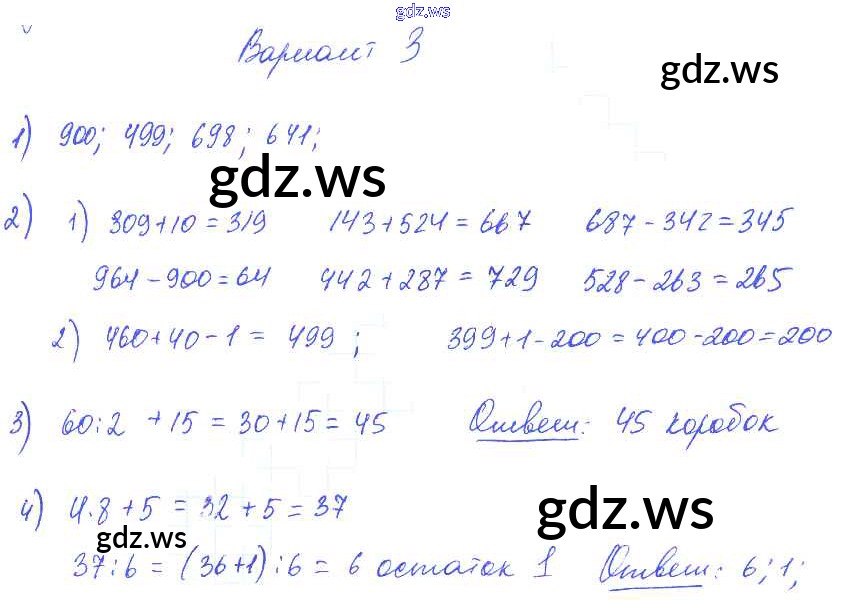 gdz.ws
Вариант 3
gdz.ws
1) 900; 499; 698; 641;
gdz.ws
2) 1) 309+10=319 143+524=667 687-342=345
964-900=64 442+287=729 528-263=265
2) 460+40-1= 499; 399+1-200=400-200=200
3) 60:2 +15=30+15=45 Ответ: 45 коробок
4) 4·8+5=32+5=37
gdz.ws
gdz.ws
37:6=(36+1):6=6 остаток 1 Ответ: 6; 1;